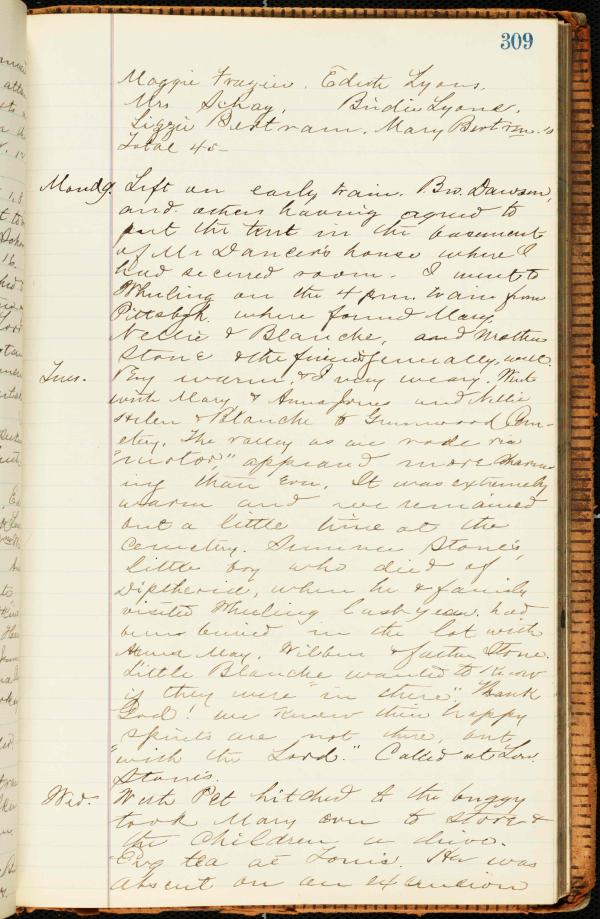 309
Maggie Frazier. Edith Lyons,
Mrs Schay, Birdie Lyons,
Lizzie Bertram, Mary Bertram.
Total 45-
Mond 9. Left on early train. Bro. Dawson,
and others having agreed to
put the tent in the basement
of Mr Dancer's house where I
had secured room. I went to
Wheeling on the 4 pm. train from
Pittsbgh. where found Mary
Nellie & Blanche, and Mother
Stone & the friends generally, well.
Tues. Very warm, & I very weary. Went
with Mary & Anna Jones and Nellie
Helen & Blanche to Greenwood Cem-
etery. The valley as we rode via
"motor," appeared more charm-
ing than ever. It was extremely
warm and we remained
but a little time at the
cemetery. Stone's,
little boy who died of
Diptheria, when he & family
visited Wheeling last year, had
been buried in the lot with
Anna May, Wilbur & father Stone.
Little Blanche wanted to know
if they were "in there". Thank
God! we know their happy
spirits are not there, but,
"with the Lord." Called at Lou.
Stone's.
Wed. With Pet hitched to the buggy
took Mary over to store &
the children a drive.
Evg tea at Lou's. He was
absent on an excursion